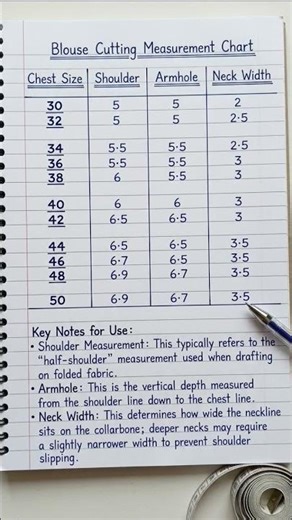 Blouse Cutting Measurement Chart
Chest Size Shoulder Armhole Neck Width
30 5 5 2
32 5 5 2·5
34 5·5 5·5 2·5
36 5·5 5·5 3
38 6 5·5 3
40 6 6 3
42 6·5 6·5 3
44 6·5 6·5 3·5
46 6·7 6·5 3·5
48 6·9 6·7 3·5
50 6·9 6·7 3·5
Key Notes for Use:
• Shoulder Measurement: This typically refers to the
"half-shoulder" measurement used when drafting
on folded fabric.
• Armhole: This is the vertical depth measured
from the shoulder line down to the chest line.
• Neck Width: This determines how wide the neckline
sits on the collarbone; deeper necks may require
a slightly narrower width to prevent shoulder
slipping.